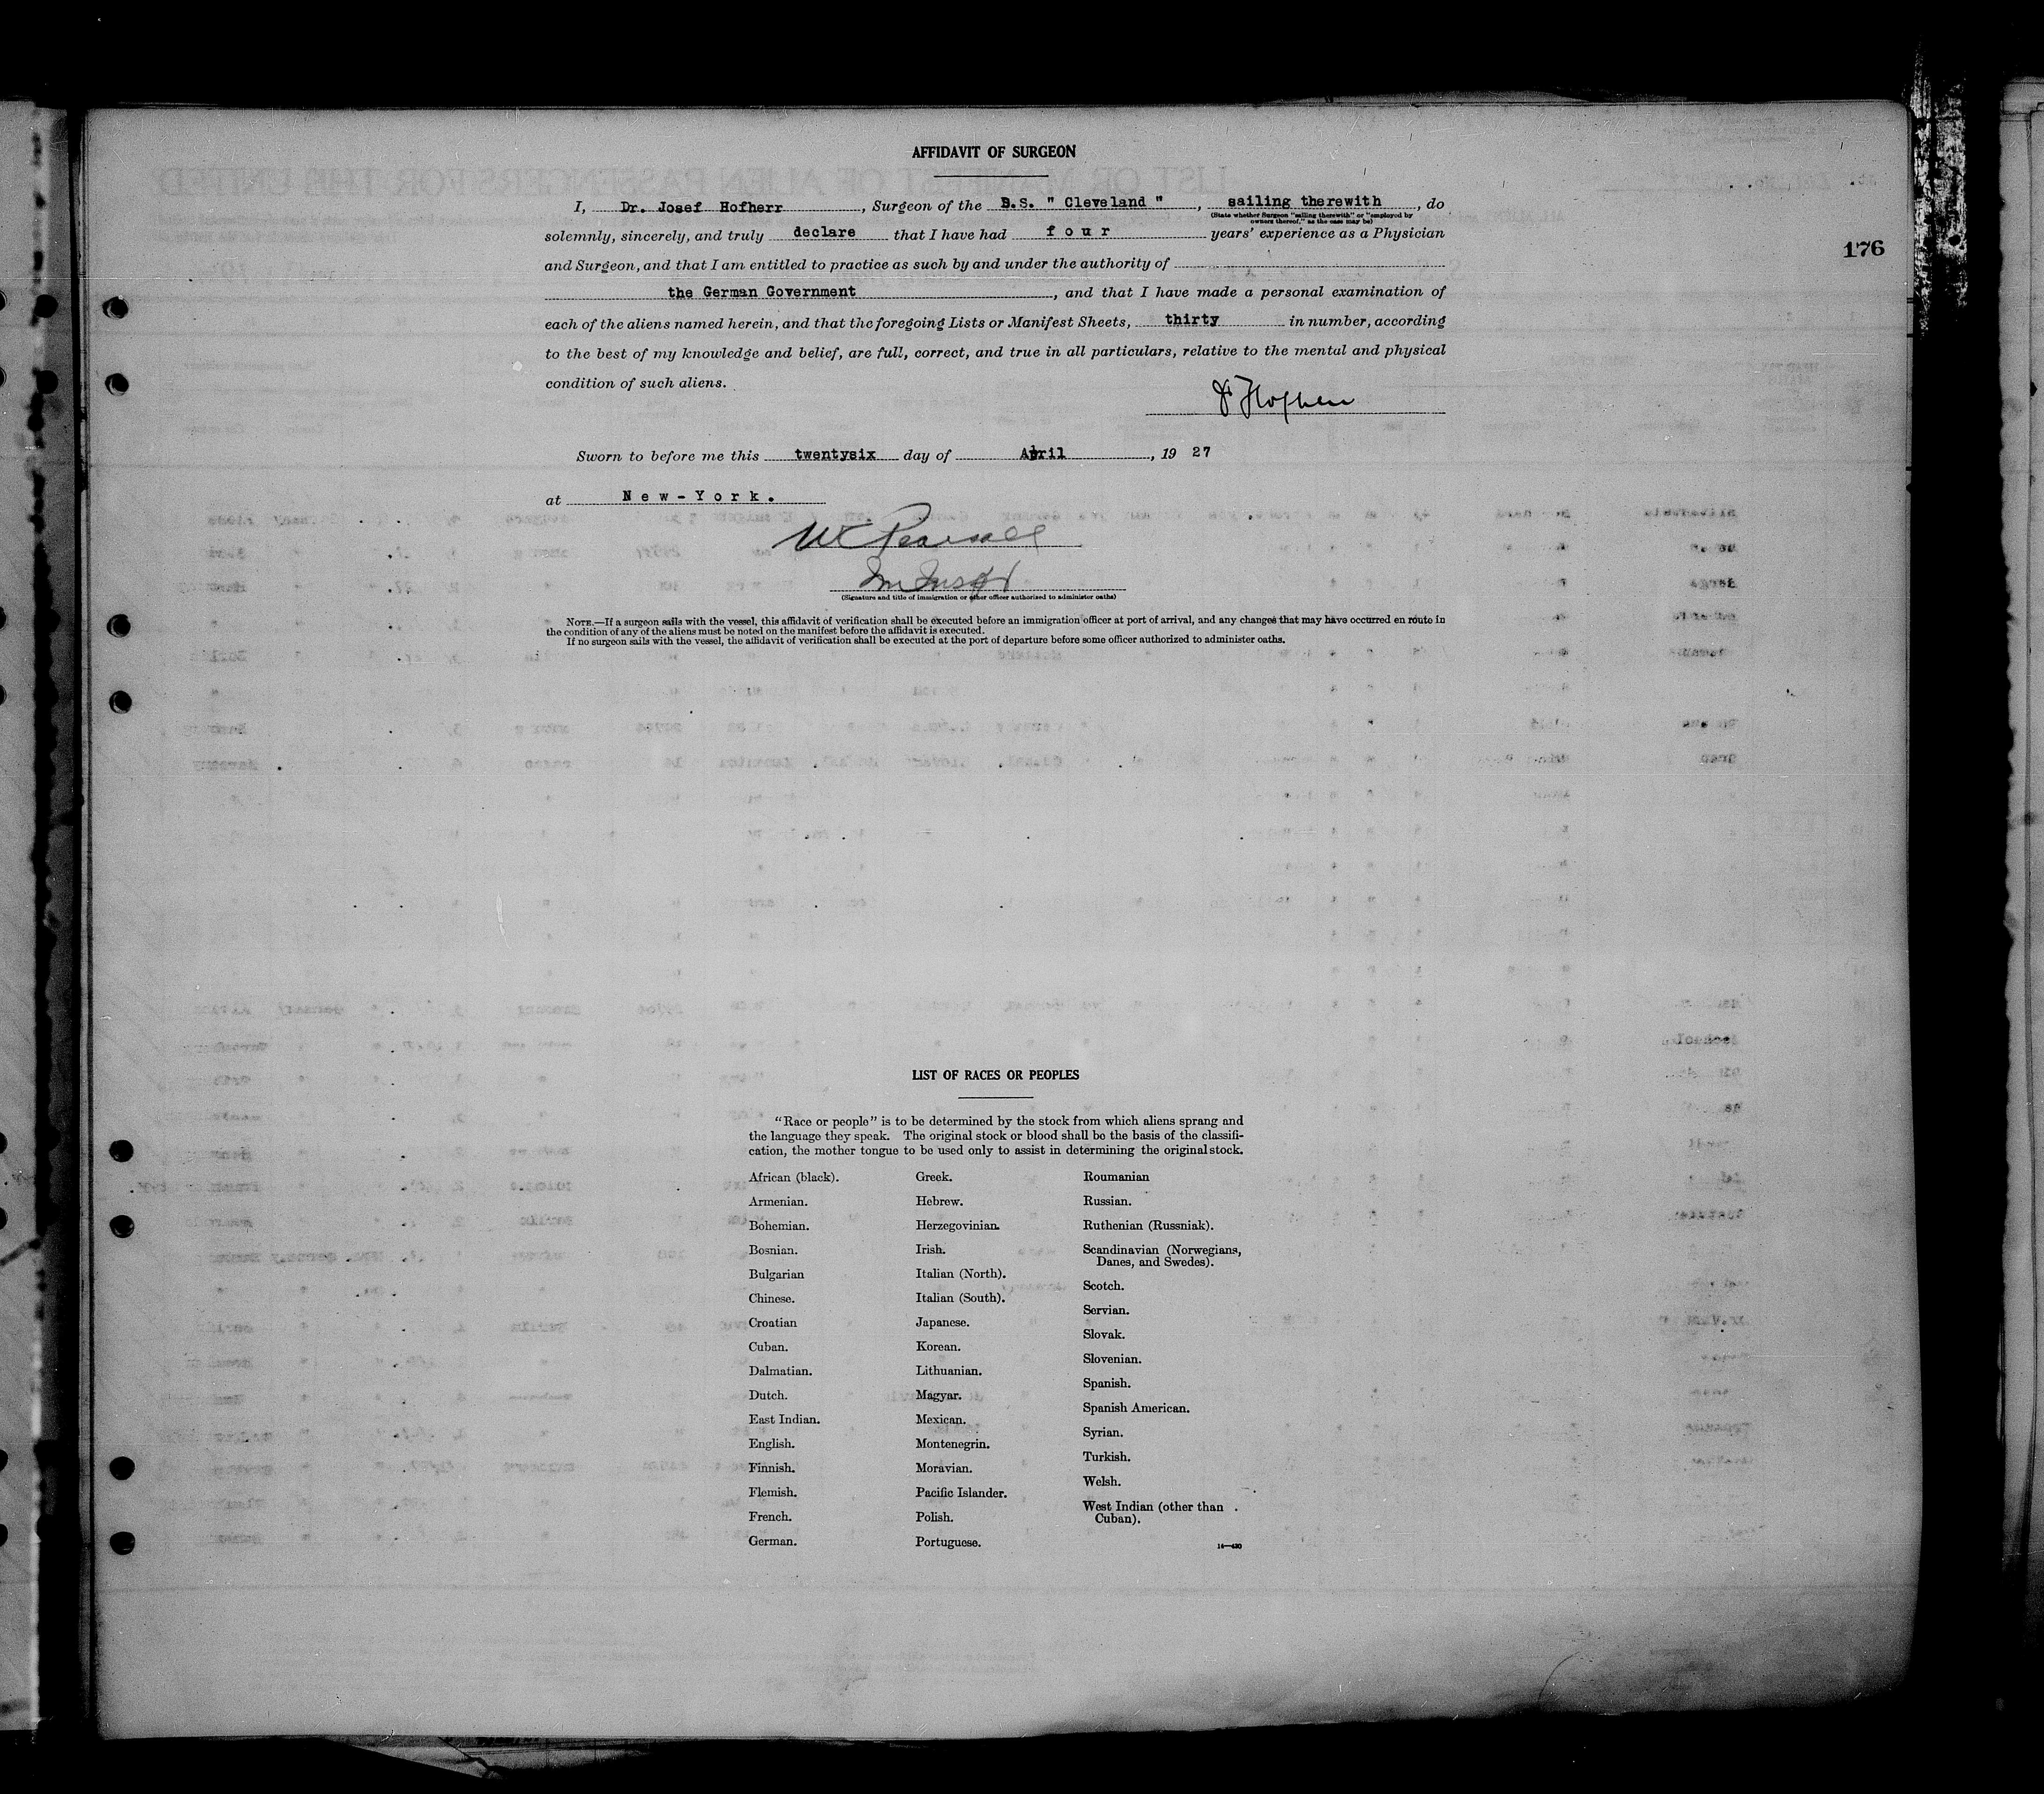 AFFIDAVIT OF SURGEON
I, Dr. Josef Hofherr, Surgeon of the D.S. " Cleveland ", sailing therewith, do
(State whether Surgeon "sailing therewith" or "employed by
owners thereof," as the case may be)
solemnly, sincerely, and truly declare that I have had four years' experience as a Physician
176
and Surgeon, and that I am entitled to practice as such by and under the authority of
the German Government, and that I have made a personal examination of
each of the aliens named herein, and that the foregoing Lists or Manifest Sheets, thirty in number, according
to the best of my knowledge and belief, are full, correct, and true in all particulars, relative to the mental and physical
condition of such aliens.
Dr Hofherr
Sworn to before me this twentysix day of April, 19 27
at New-York.
W Pearsall
Im Insp
(Signature and title of immigration or other officer authorized to administer oaths)
NOTE.—If a surgeon sails with the vessel, this affidavit of verification shall be executed before an immigration officer at port of arrival, and any changes that may have occurred en route in
the condition of any of the aliens must be noted on the manifest before the affidavit is executed.
If no surgeon sails with the vessel, the affidavit of verification shall be executed at the port of departure before some officer authorized to administer oaths.
LIST OF RACES OR PEOPLES
"Race or people" is to be determined by the stock from which aliens sprang and
the language they speak. The original stock or blood shall be the basis of the classifi-
cation, the mother tongue to be used only to assist in determining the original stock.
African (black).
Armenian.
Bohemian.
Bosnian.
Bulgarian
Chinese.
Croatian
Cuban.
Dalmatian.
Dutch.
East Indian.
English.
Finnish.
Flemish.
French.
German.
Greek.
Hebrew.
Herzegovinian.
Irish.
Italian (North).
Italian (South).
Japanese.
Korean.
Lithuanian.
Magyar.
Mexican.
Montenegrin.
Moravian.
Pacific Islander.
Polish.
Portuguese.
Roumanian
Russian.
Ruthenian (Russniak).
Scandinavian (Norwegians,
Danes, and Swedes).
Scotch.
Servian.
Slovak.
Slovenian.
Spanish.
Spanish American.
Syrian.
Turkish.
Welsh.
West Indian (other than
Cuban).